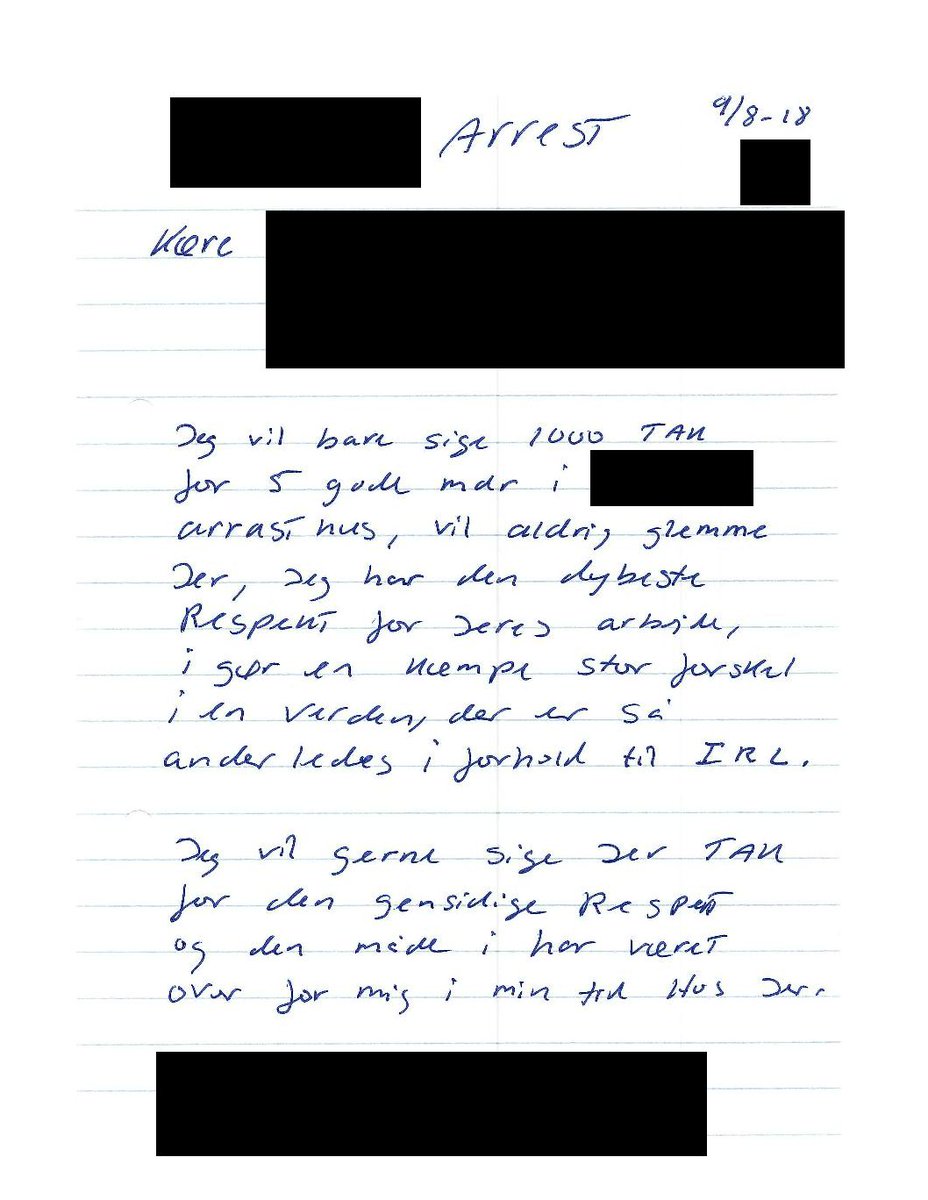 Arrest 9/8-18
Kære
Jeg vil bare sige 1000 TAK
for 5 gode mdr i
arrasthus, vil aldrig glemme
Jer, Jeg har den dybeste
Respekt for Jeres arbejde,
i gør en kæmpe stor forskel
i en verden, der er så
anderledes i forhold til IRL.
Jeg vil gerne sige Jer TAK
for den gensidige Respekt
og den måde i har været
over for mig i min tid Hos Jer.